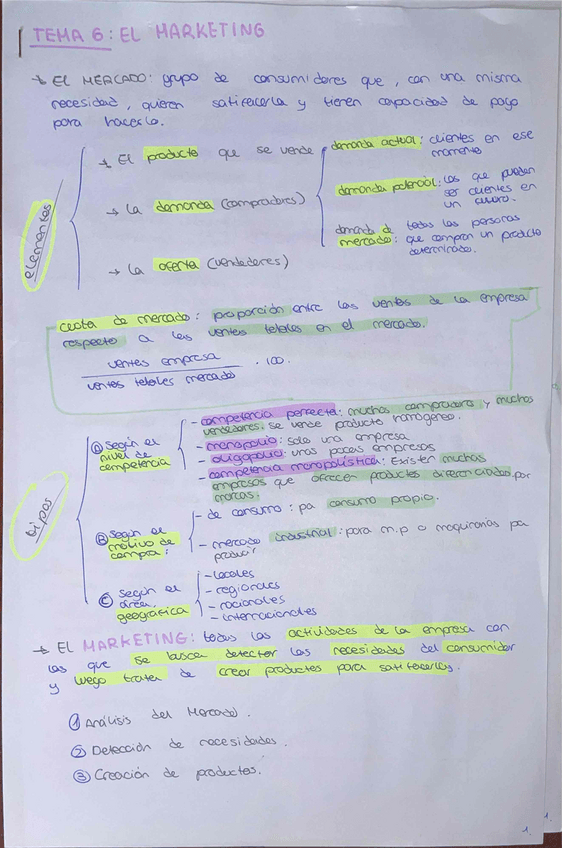 TEMA 6: EL MARKETING
→ EL MERCADO: grupo de consumidores que, con una misma
necesidad, quieren satifacerla y tienen capacidad de pago
para hacerlo.
elementos
→ El producto que se vende
→ La demanda (compradores)
→ La oferta (vendedores)
demanda actual: clientes en ese
momento
demanda potencial: los que pueden
ser clientes en
un futuro.
demanda de todas las personas
mercado: que compran un producto
determinado.
cuota de mercado: proporción entre las ventas de la empresa
respecto a las ventas totales en el mercado.
ventas empresa
ventas totales mercado · 100.
tipos
Ⓐ Según el
nivel de
competencia
- competencia perfecta: muchos compradores y muchos
vendedores. se vende producto homogéneo.
- monopolio: solo una empresa
- oligopolio: unas pocas empresas
- competencia monopolística: Existen muchas
empresas que ofrecen productos diferenciados por
marcas.
Ⓑ Según el
motivo de
compra:
- de consumo: pa consumo propio.
- mercado industrial: para m.p o maquinarias pa
producir
Ⓒ Según el
área
geográfica
- locales
- regionales
- nacionales
- internacionales
→ EL MARKETING: todas las actividades de la empresa con
las que se buscan detectar las necesidades del consumidor
y luego trata de crear productos para satisfacerlos.
① Análisis del Mercado.
② Detección de necesidades.
③ Creación de productos.
1.
1.